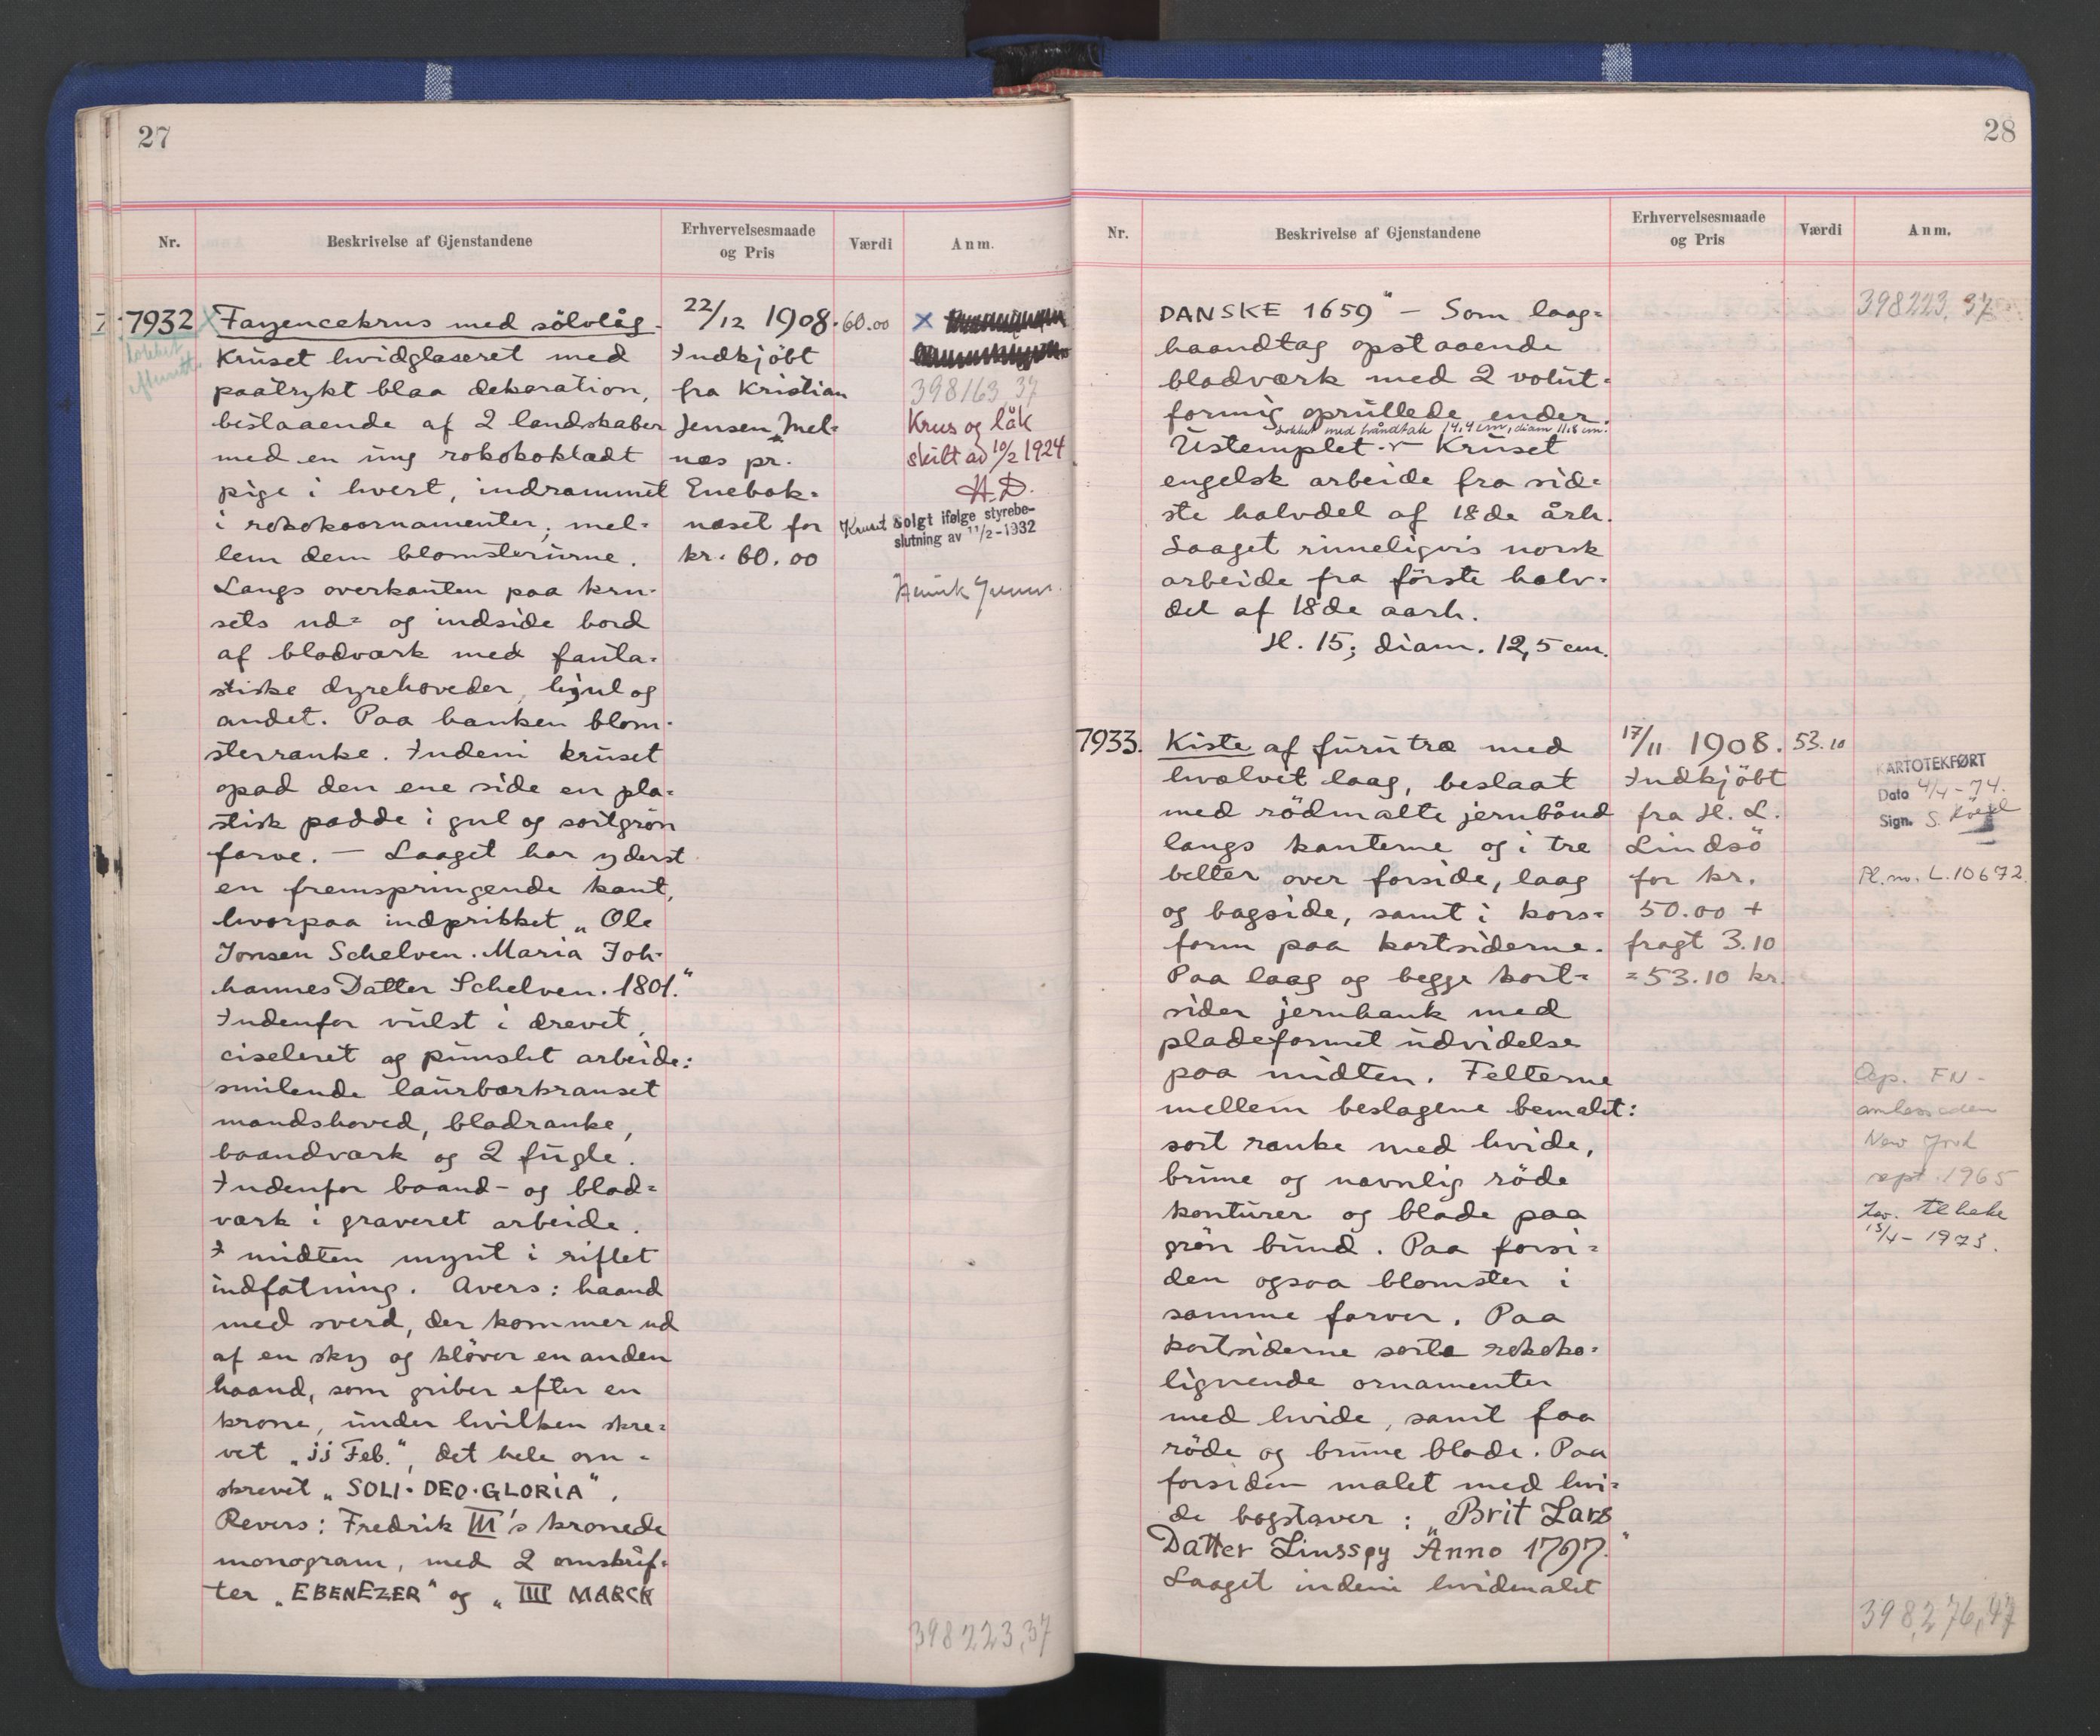 27
Nr.
Beskrivelse af Gjenstandene
Erhvervelsesmaade
og Pris
Værdi
Anm.
7932
Fayencekrus med sölvlåg.
Kruset hvidglaseret med
paatrykt blaa dekoration,
bestaaende af 2 landskaber
med en ung rokokoklædt
pige i hvert, indrammet
i rokokoornamenter, mel=
lem dem blomsterurne.
Langs overkanten paa kru-
sets ud= og indside bord
af bladværk med fanta-
stiske dyrehoveder, hjul og
andet. Paa hanken blom-
sterranke. Indeni kruset
opad den ene side en pla=
stisk padde i gul og sortgrön
farve. — Laaget har yderst
en fremspringende kant,
hvorpaa indprikket „Ole
Jonsen Schelven. Maria Joh-
hannes Datter Schelven. 1801."
Indenfor vulst i drevet,
ciseleret og punslet arbeide:
smilende laurbærkranset
mandshoved, bladranke,
baandværk og 2 fugle.
Indenfor baand- og blad=
værk i graveret arbeide.
I midten mynt i riflet
indfatning. Avers: haand
med sverd, der kommer ud
af en sky og klöver en anden
haand, som griber efter en
krone, under hvilken skre=
vet „jj Feb.", det hele om-
skrevet „SOLI·DEO·GLORIA",
Revers: Fredrik III's kronede
monogram, med 2 omskrif-
ter „EBENEZER" og „IIII MARCK
22/12 1908.
Indkjöbt
fra Kristian
Jensen, Mel=
næs pr.
Enebak=
næset for
kr. 60.00
60.00
x
398163,37
Krus og låk
skilt ad 10/2 1924
H.D.
Kruset Solgt ifølge styrebe-
slutning av 11/2-1932
398223,37
28
Nr.
Beskrivelse af Gjenstandene
Erhvervelsesmaade
og Pris
Værdi
Anm.
DANSKE 1659" — Som laag=
haandtag opstaaende
bladværk med 2 volut-
formig oprullede ender.
Lokket med håndtak 14,4 cm, diam 11,8 cm.
Ustemplet. — Kruset
engelsk arbeide fra sid-
ste halvdel af 18de årh.
Laaget rimeligvis norsk
arbeide fra förste halv-
del af 18de aarh.
H. 15; diam. 12,5 cm.
398223,37
7933.
Kiste af furutræ med
hvælvet laag, beslaat
med rödmalte jernbånd
langs kanterne og i tre
belter over forside, laag
og bagside, samt i kors=
form paa kortsiderne.
Paa laag og begge kort=
sider jernhank med
pladeformet udvidelse
paa midten. Felterne
mellem beslagene bemalet:
sort ranke med hvide,
brune og navnlig röde
konturer og blade paa
grön bund. Paa forsi=
den ogsaa blomster i
samme farver. Paa
kortsiderne sorte rokoko=
lignende ornamenter
med hvide, samt faa
röde og brune blade. Paa
forsiden malet med hvi=
de bogstaver: „Brit Lars
Datter Linsspy Anno 1797."
Laaget indeni hvidmalet
17/11 1908.
Indkjöbt
fra H. L.
Lindsö
for kr.
50.00 +
fragt 3.10
=53.10 kr.
53.10
KARTOTEKFØRT
Dato 4/4-74.
Sign. S.
Pl. nr. L.10672.
Dep. FN-
ambassaden
New York
sept. 1965
Lev. tilbake
13/4-1973.
398,276,47